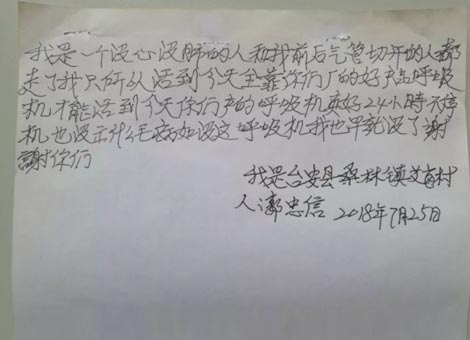 我是一个没心没肺的人和我前后气管切开的人都
走了我只所以活到今天全靠你们厂的好产品呼吸
机才能活到今天你们产的呼吸机真好24小時不停
机也没出什么毛病如没这呼吸机我也早就没了謝
謝你们
我是台安县桑林镇艾家村
人 忠信 2018年7月25日